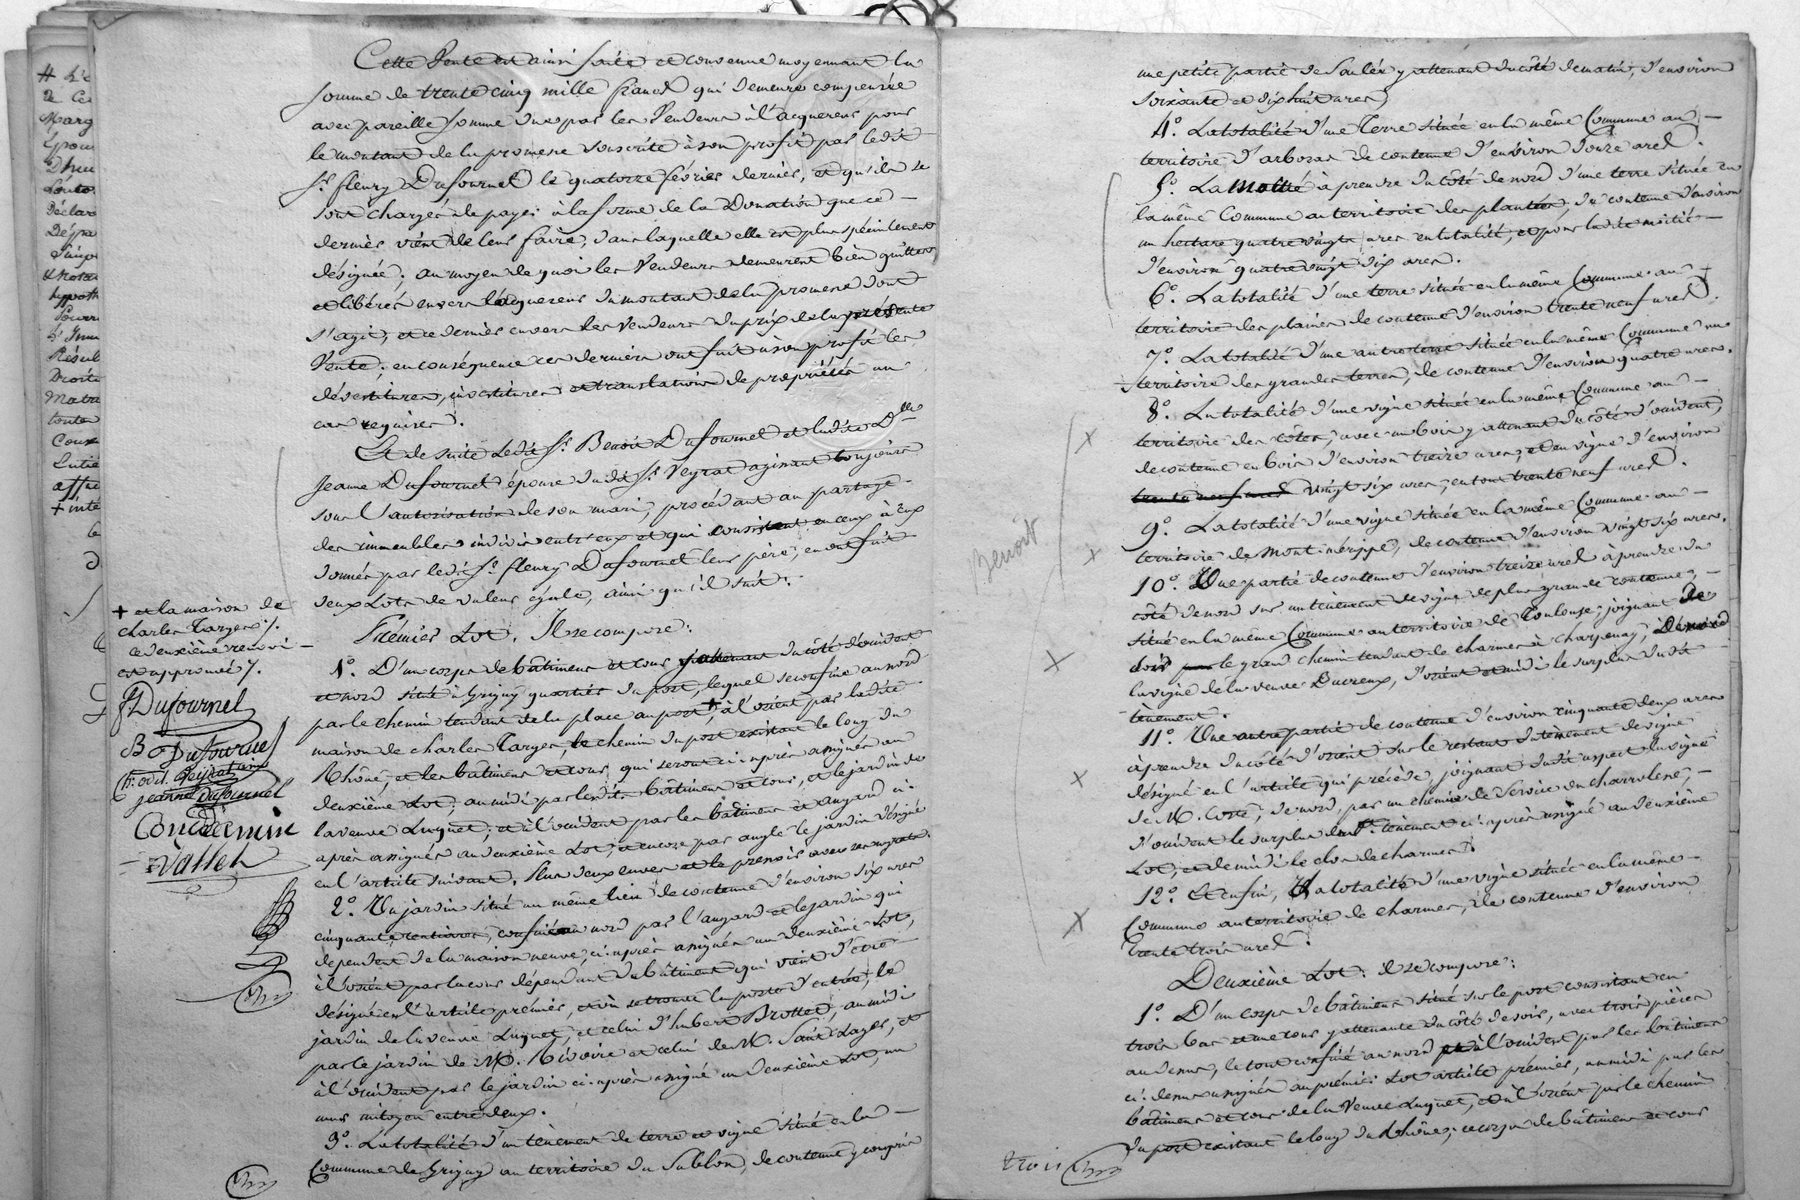 Cette Vente est ainsi faite et convenue moyennant la
somme de trente cinq mille francs qui demeure compensée
avec pareille somme due par les Vendeurs à l'acquereur pour
le montant de la promesse souscrite à son profit par ledit
Sr. fleury Dufournel le quatorze février dernier, et qu'ils se
sont chargés de payer à la forme de la Donation que ce
dernier vient de leur faire, dans laquelle elle est plus spécialement
désignée; au moyen de quoi les Vendeurs demeurent bien quittes
et libérés envers l'acquereur du montant de la promesse dont
s'agit, et ce dernier envers les Vendeurs du prix de la présente
Vente; en conséquence ces derniers ont fait à son profit les
dévestitures, investitures et translations de propriétés en
cas requises.
Et de suite Ledit Sr. Benoit Dufournel et ladite Dlle
Jeanne Dufournel épouse dudit Sr. Veyrat agissant toujours
sous l'autorisation de son mari, procédant au partage
des immeubles indivis entr'eux et qui consistent en ceux à Eux
donnés par ledit Sr. fleury Dufournel leur père, en ont fait
deux Lots de valeur égale, ainsi qu'il suit.
Premier Lot. Il se compose:
1o. D'un corps de bâtimens et cour y attenant du côté d'occident
et nord situé à Grigny quartier du port, lequel se confine au nord
par le chemin tendant de la place au port +, à l'orient par ladite
maison de charles Targer, le chemin du port existant le long du
Rhône, et les bâtimens et cour, qui seront ci après assignés au
deuxième Lot; au midi par lesdits bâtimens et cour, et le jardin de
la veuve Luquet; et à l'occident par les bâtimens et angard ci-
après assignés au deuxième Lot, et encore par angle le jardin désigné
en l'article suivant. Plus deux cuves et le pressoir avec ses agrets.
2o. Un jardin situé au même lieu de contenue d'environ six ares
cinquante centiares, confiné au nord par l'angard et le jardin qui
dependent de la maison neuve, ci-après assignés au deuxième Lot,
à l'orient par la cour dépendant du bâtiment qui vient d'être
désigné en l'article premier, et où se trouve la porte d'entrée, le
jardin de la veuve Luquet, et celui d'hubert Brottet, au midi
par le jardin de M. Rivoire et celui de M. Saint Lager, et
à l'occident par le jardin ci-après assigné au deuxième Lot, un
mur mitoyen entre deux.
3o. La totalité d'un tènement de terre et vigne situé en la
Commune de Grigny au territoire du Sablon, de contenue y compris
+ et la maison de
charles Targer /.
ce deuxième renvoi
est approuvé /.
f Dufournel
B Dufournel
jeanne Dufournel
Condermine
Vallet
une petite partie de Saulée y attenant du côté de matin, d'environ
soixante et dix huit ares
4o. La totalité d'une Terre située en la même Commune au
territoire d'arboras de contenue d'environ douze ares.
5o. La Moitié à prendre du côté de nord d'une terre située en
la même Commune au territoire des plantées, de contenue d'environ
un hectare quatre vingts ares en totalité, et pour ladite moitié
d'environ quatre vingt dix ares.
6o. La totalité d'une terre située en la même Commune au
territoire des plaines de contenue d'environ trente neuf ares.
7o. La totalité d'une autre terre située en la même Commune au
territoire des grandes terres, de contenue d'environ quatre ares.
8o. La totalité d'une vigne située en la même Commune au
territoire des côtes, avec un bois y attenant du côté d'occident,
de contenue en bois d'environ treize ares, et en vigne d'environ
trente neuf ares vingt six ares, en tout trente neuf ares.
9o. La totalité d'une vigne située en la même Commune au
territoire de Mont-, de contenue d'environ vingt six ares.
10o. Une partie de contenue d'environ treize ares à prendre du
côté de nord sur un tènement de vigne de plus grande contenue,
situé en la même Commune au territoire de Toulouse; joignant de
soir le grand chemin tendant de charmes à Charpenay, de nord
la vigne de la veuve Ducreux, d'orient et midi le surplus dudit
tènement.
11o. Une autre partie de contenue d'environ cinquante deux ares
à prendre du côté d'orient sur le restant du tènement de vigne
désigné en l'article qui précède, joignant dudit aspect la vigne
de M. Coste, de nord, par un chemin de service du charrolene,
d'occident le surplus dudit tènement ci-après assigné au deuxième
Lot, et de midi le clos de charmes.
12o. Et enfin, La totalité d'une vigne située en la même
Commune au territoire de charmes, de contenue d'environ
trente trois ares.
Deuxième Lot: il se compose:
1o. D'un corps de bâtimens situé sur le port consistant en
trois bas et une cour y attenante du côté de soir, avec trois pièces
au dessus, le tout confiné au nord et à l'occident par les bâtimens
ci-dessus assignés au premier Lot article premier, au midi par les
bâtimens et cour de la Veuve Luquet, et à l'orient par le chemin
du port existant le long du Rhône; ce corps de bâtimens et cour
Benoit
trois